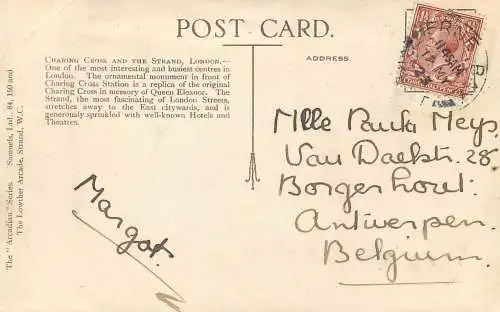 POST CARD.
CHARING CROSS AND THE STRAND, LONDON.—
One of the most interesting and busiest centres in
London. The ornamental monument in front of
Charing Cross Station is a replica of the original
Charing Cross in memory of Queen Eleanor. The
Strand, the most fascinating of London Streets,
stretches away to the East citywards, and is
generously sprinkled with well-known Hotels and
Theatres.
ADDRESS.
Mlle Paula Meys
Van Daelstr. 28.
Borgerhout.
Antwerpen.
Belgium.
Margot.
The "Arcadian" Series. Samuels, Ltd., 84, 150 and
The Lowther Arcade, Strand, W.C.